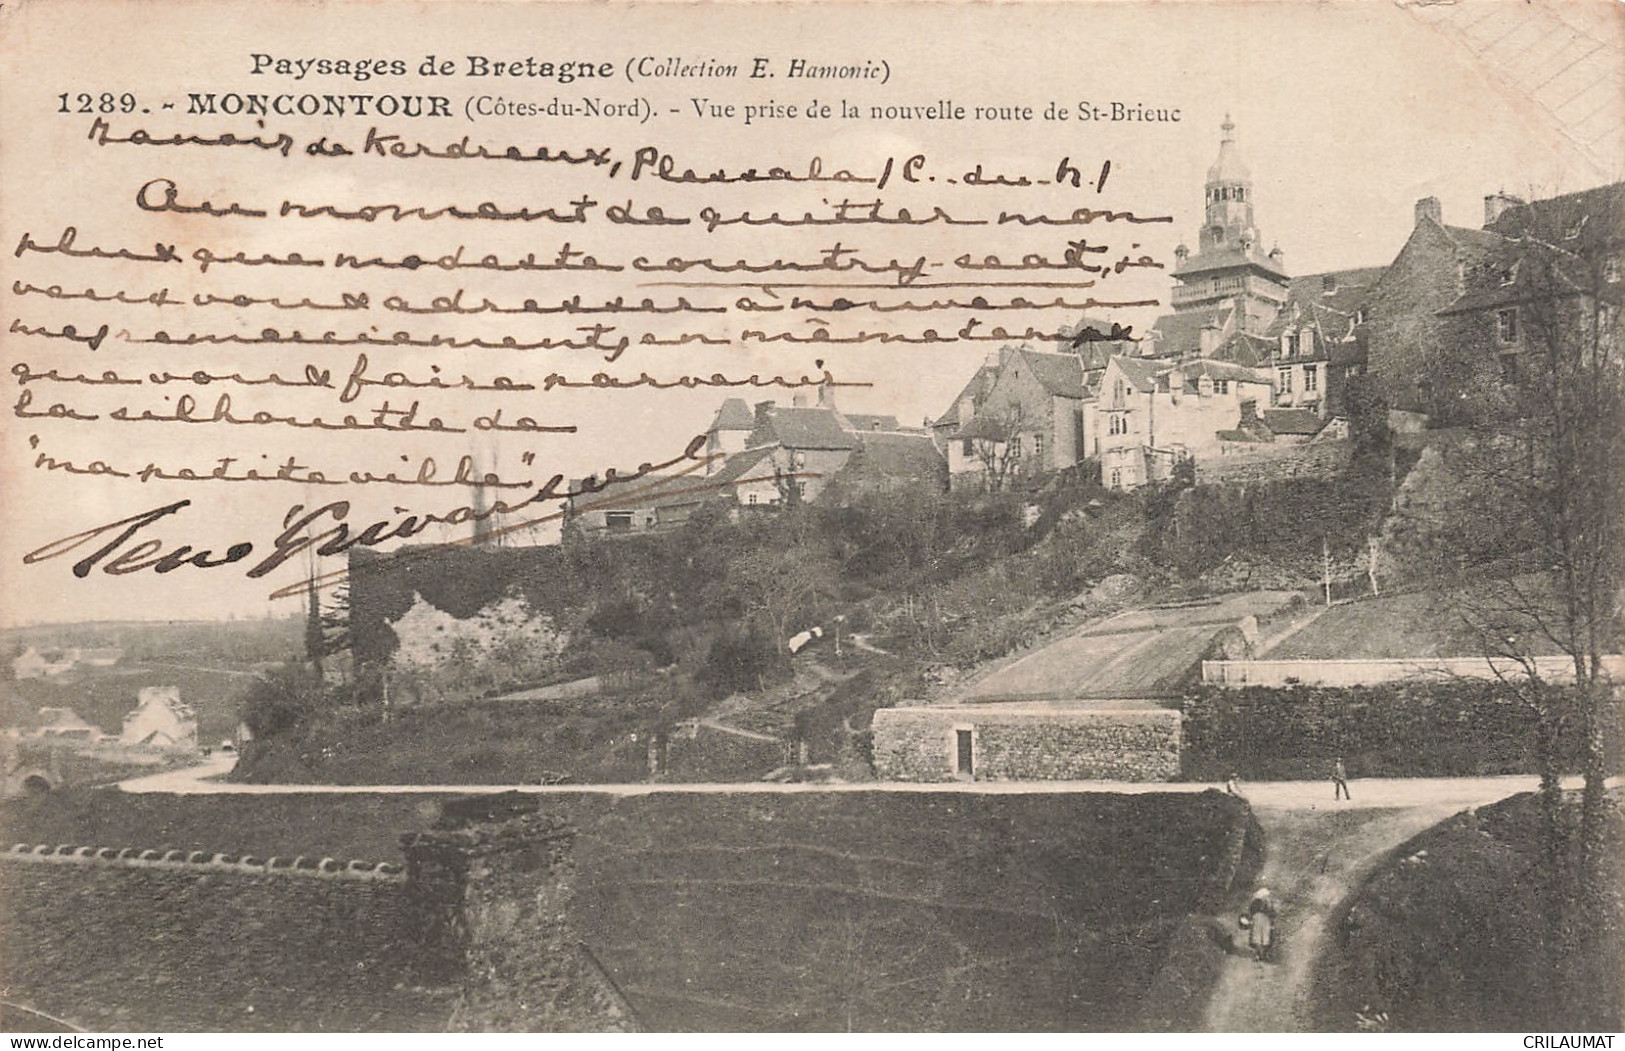 Paysages de Bretagne (Collection E. Hamonic)
1289. - MONCONTOUR (Côtes-du-Nord). - Vue prise de la nouvelle route de St-Brieuc
Manoir de Kerdreux, Plessala / C.-du-N. /
Au moment de quitter mon
plus que modeste country-seat, je
veux vous adresser à nouveau
mes remerciements, en même temps
que vous faire parvenir
la silhouette de
"ma petite ville"
CRILAUMAT